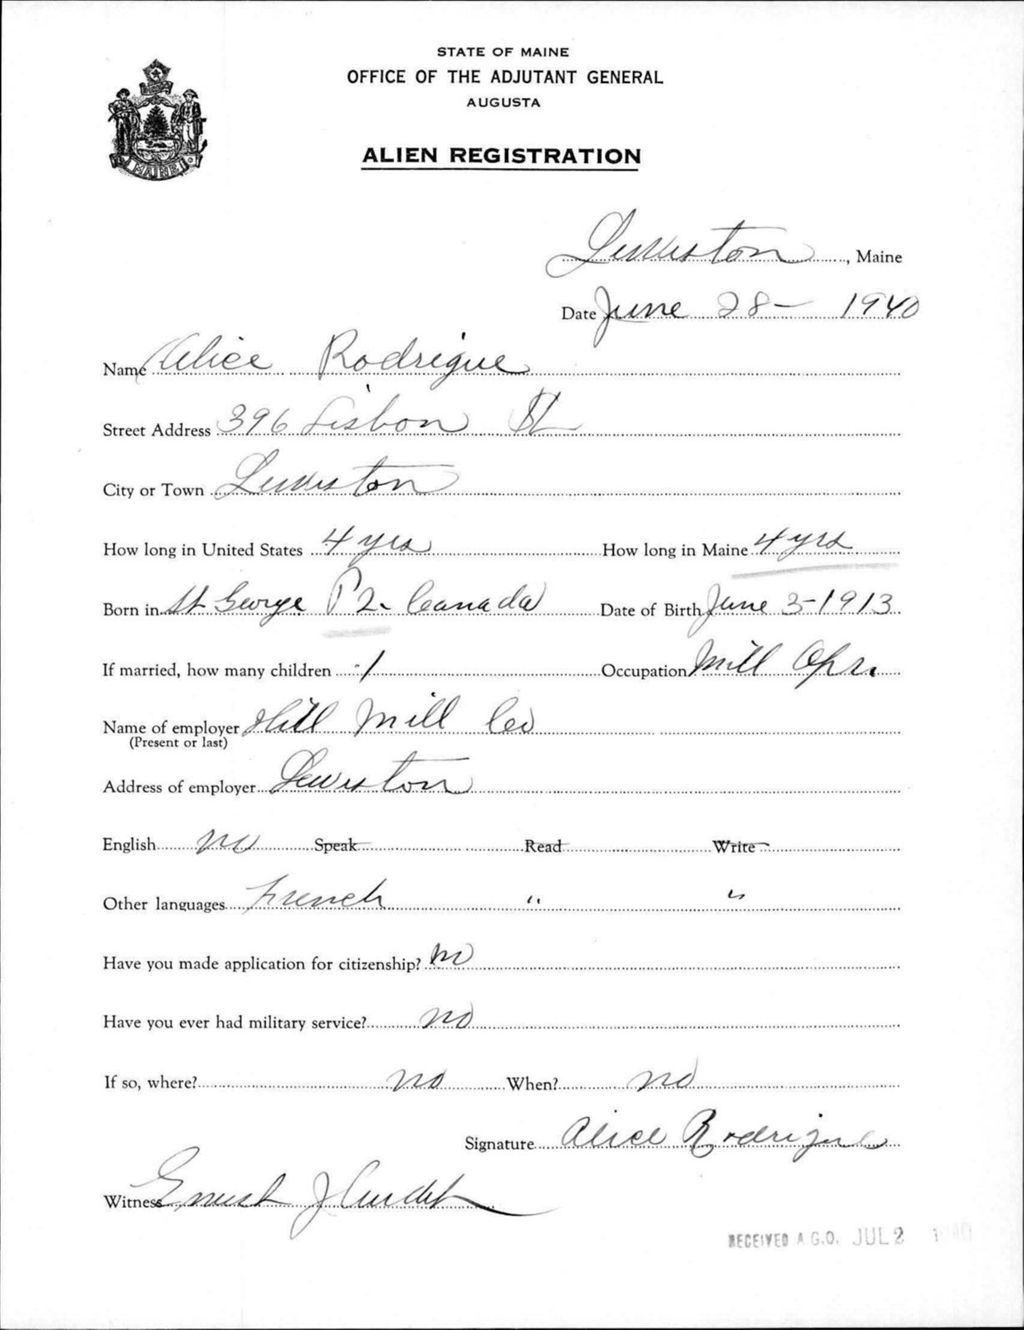 STATE OF MAINE
OFFICE OF THE ADJUTANT GENERAL
AUGUSTA
ALIEN REGISTRATION
MAINE
Lewiston, Maine
Date June 28 - 1940
Name Alice Rodrigue
Street Address 396 Lisbon St
City or Town Lewiston
How long in United States 4 yrs How long in Maine 4 yrs
Born in St George P2. Canada Date of Birth June 3-1913
If married, how many children 1 Occupation Mill Opr.
Name of employer Hill Mill Co
(Present or last)
Address of employer Lewiston
English no Speak Read Write
Other languages French " "
Have you made application for citizenship? no
Have you ever had military service? no
If so, where? no When? no
Signature Alice Rodrigue
Witness J
RECEIVED A.G.O. JUL 2 1940